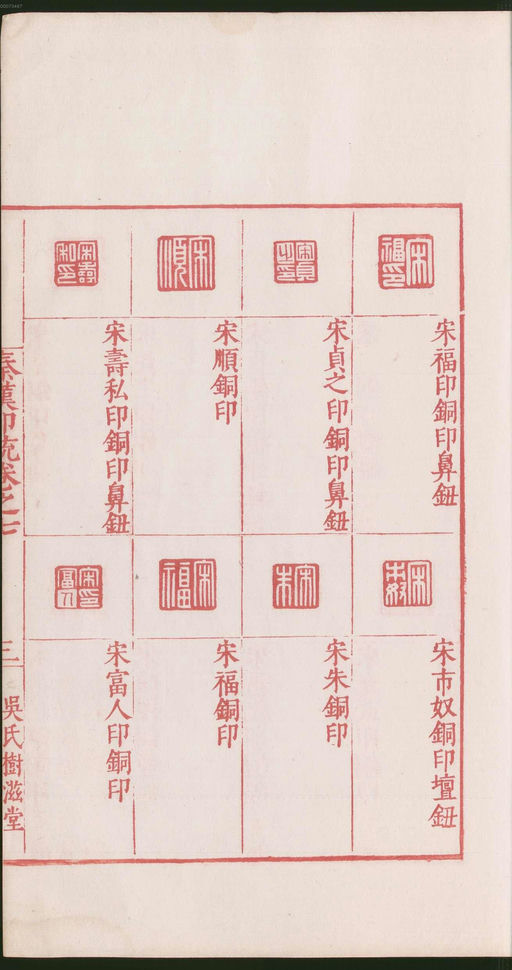 宋福印銅印鼻鈕
宋貞之印銅印鼻鈕
宋順銅印
宋壽私印銅印鼻鈕
宋市奴銅印壇鈕
宋朱銅印
宋福銅印
宋富人印銅印
秦漢印統卷之七
三
吳氏樹滋堂